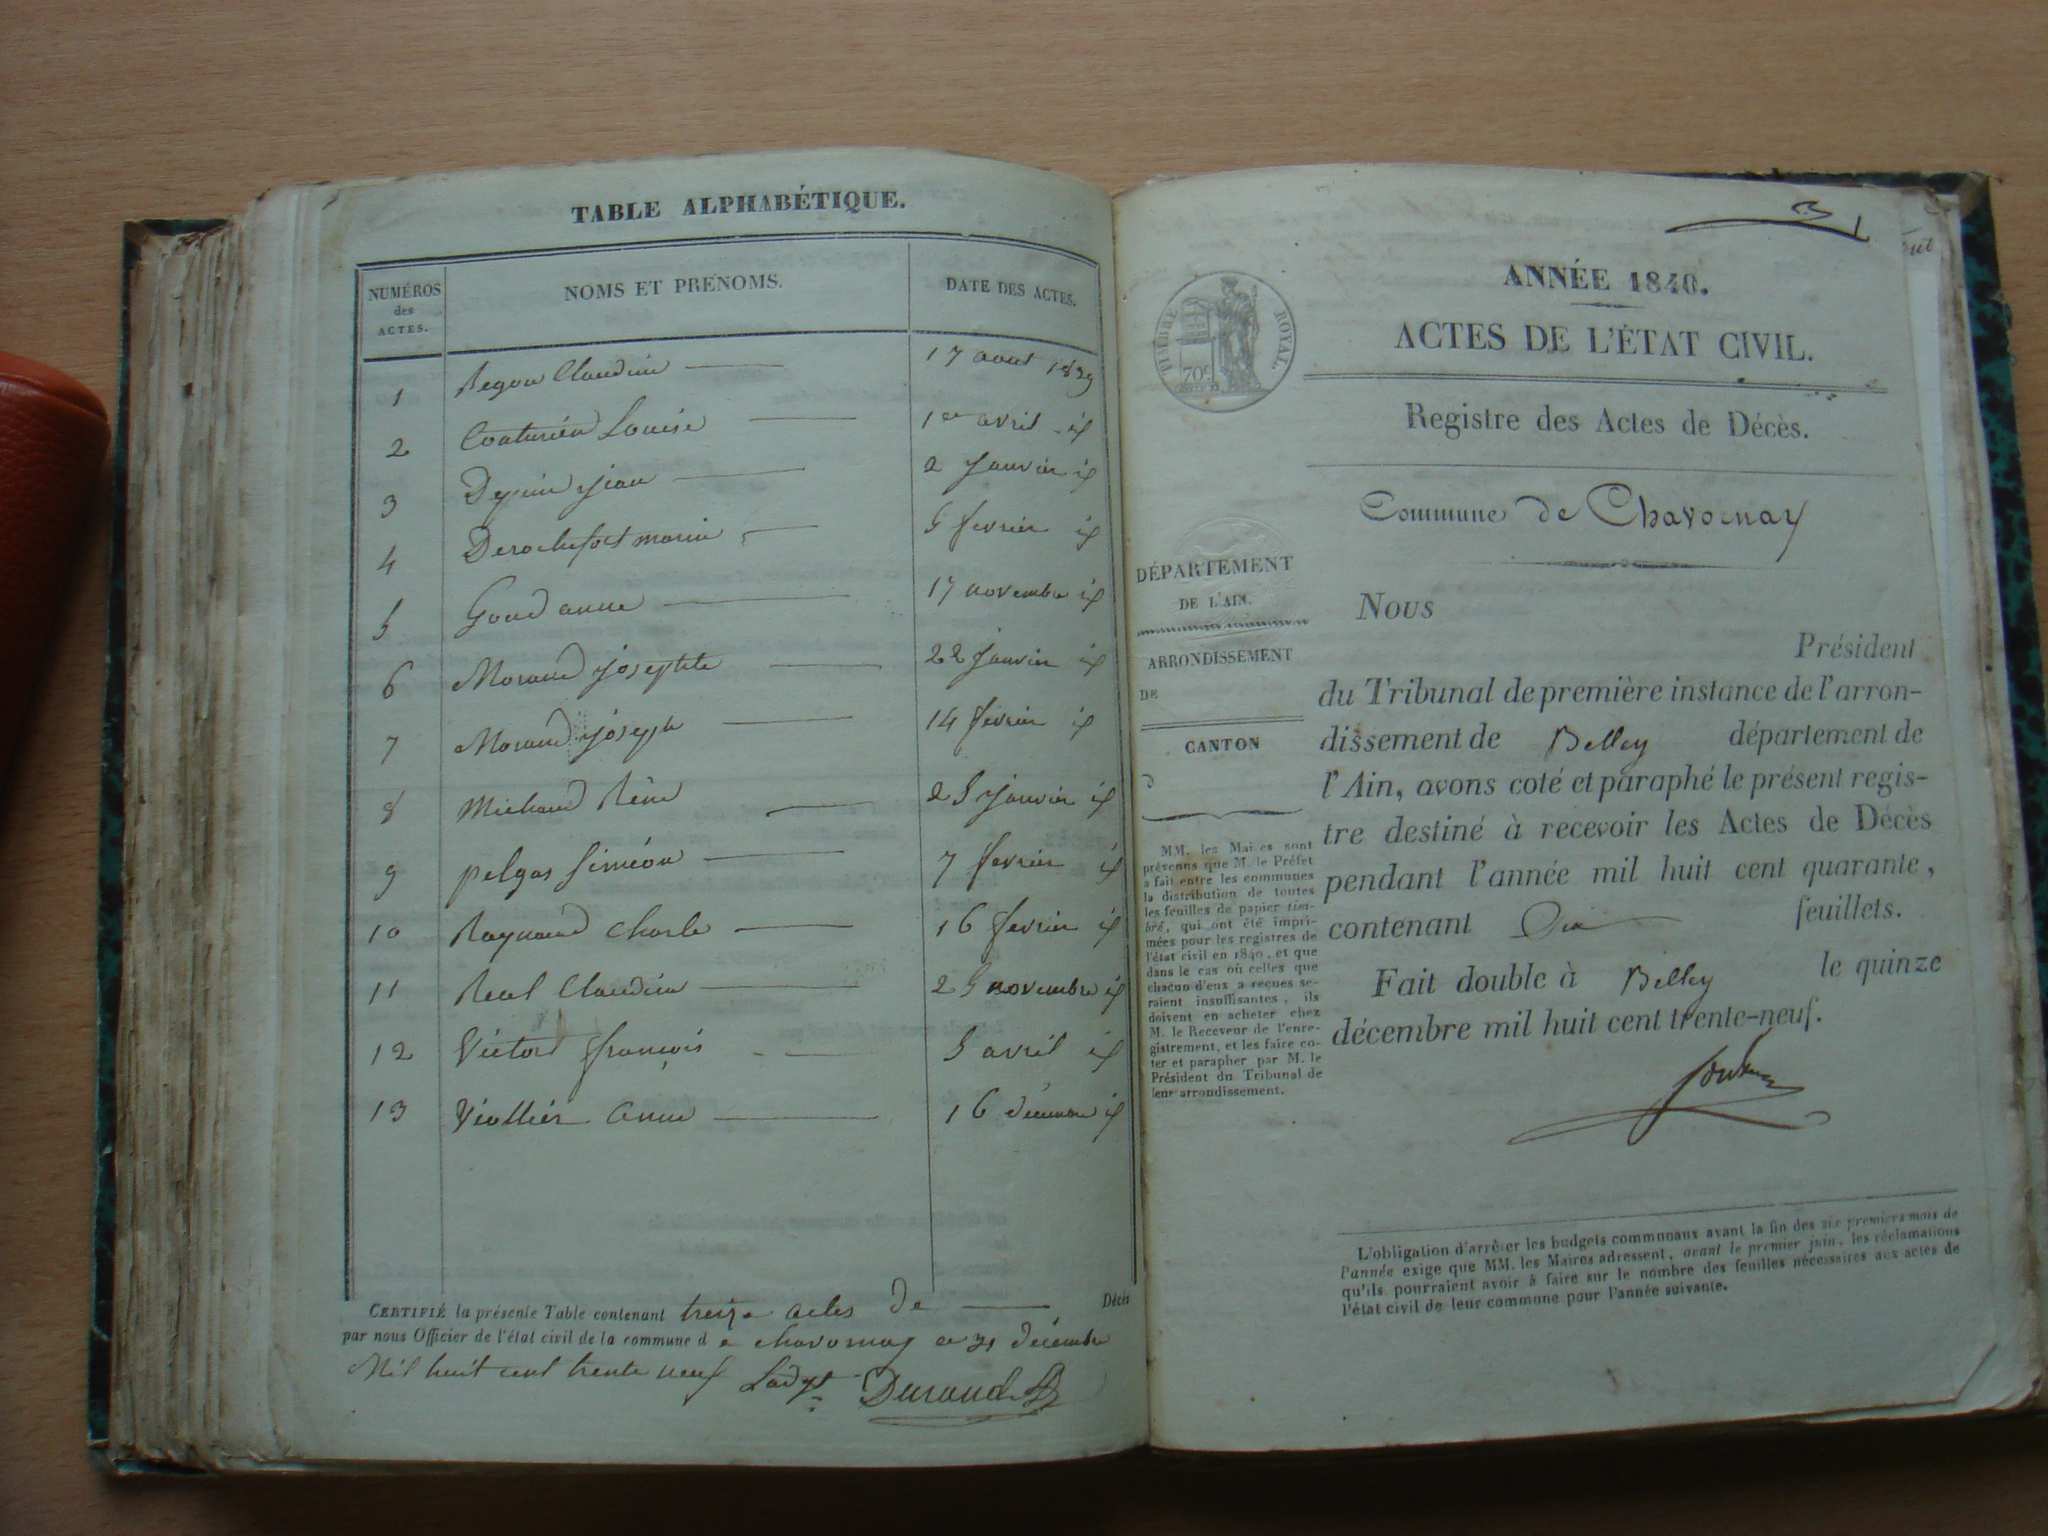 TABLE ALPHABÉTIQUE.
NUMÉROS des ACTES.
NOMS ET PRÉNOMS.
DATE DES ACTES.
1 Claudine 17 aout 1839
2 Couturier Louise 1er avril id
3 Depuis Jean 2 Janvier id
4 Derochefort marie 5 fevrier id
5 Goud anne 17 novembre id
6 Morand josephte 22 Janvier id
7 Morand joseph 14 fevrier id
8 Michaud Réné 25 Janvier id
9 pelgas Siméon 7 fevrier id
10 Raynaud Charle 16 fevrier id
11 Real Claudine 25 novembre id
12 Victor françois 5 avril id
13 Viollier anne 16 décembre id
CERTIFIÉ la présente Table contenant treize actes de Décès
par nous Officier de l'état civil de la commune de chavornay ce 31 décembre
Mil huit cent trente neuf
Durand
TIMBRE ROYAL
70c
ANNÉE 1840.
ACTES DE L'ÉTAT CIVIL.
Registre des Actes de Décès.
Commune de Chavornay
DÉPARTEMENT
DE L'AIN.
ARRONDISSEMENT
DE
CANTON
d
MM. les Maires sont
prévenus que M. le Préfet
a fait entre les communes
la distribution de toutes
les feuilles de papier tim-
bré, qui ont été impri-
mées pour les registres de
l'état civil en 1840, et que
dans le cas où celles que
chacun d'eux a reçues se-
raient insuffisantes, ils
doivent en acheter chez
M. le Receveur de l'enre-
gistrement, et les faire co-
ter et parapher par M. le
Président du Tribunal de
leur arrondissement.
Nous
Président
du Tribunal de première instance de l'arron-
dissement de Belley département de
l'Ain, avons coté et paraphé le présent regis-
tre destiné à recevoir les Actes de Décès
pendant l'année mil huit cent quarante,
contenant Dix feuillets.
Fait double à Belley le quinze
décembre mil huit cent trente-neuf.
L'obligation d'arrêter les budgets communaux avant la fin des six premiers mois de
l'année exige que MM. les Maires adressent, avant le premier juin, les réclamations
qu'ils pourraient avoir à faire sur le nombre des feuilles nécessaires aux actes de
l'état civil de leur commune pour l'année suivante.